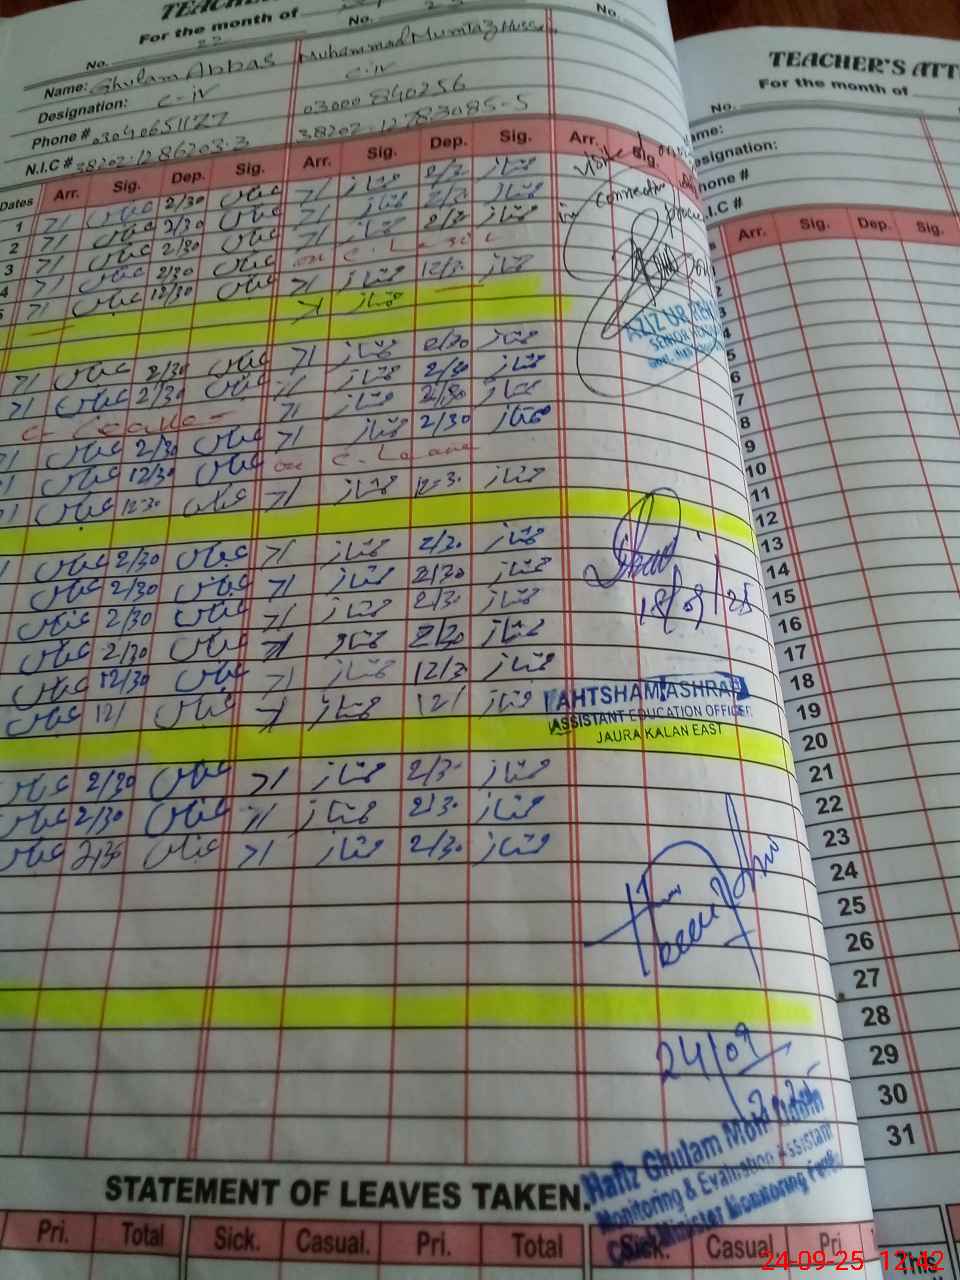 For the month of
No.
No.
No.
Name: Ghulam Abbas Muhammad Mumtaz Hussain
Designation: C-iv C-iv
Phone # 03040651127 03000840256
N.I.C # 38202-1286203-3 38202-12783085-5
Dates Arr. Sig. Dep. Sig. Arr. Sig. Dep. Sig. Arr. Sig.
1 7/ عباس 2/30 عباس 7/ ممتاز 2/30 ممتاز
2 7/ عباس 2/30 عباس 7/ ممتاز 2/30 ممتاز
3 7/ عباس 2/30 عباس 7/ ممتاز 2/30 ممتاز
4 7/ عباس 2/30 عباس on C. Leave
5 7/ عباس 12/30 عباس 7/ ممتاز 12/30 ممتاز
7/ ممتاز
7/ عباس 2/30 عباس 7/ ممتاز 2/30 ممتاز
7/ عباس 2/30 عباس 7/ ممتاز 2/30 ممتاز
7/ ممتاز 2/30 ممتاز
7/ عباس 2/30 عباس 7/ ممتاز 2/30 ممتاز
عباس 12/30 عباس on C. Leave
عباس 12-30 عباس 7/ ممتاز 12-30 ممتاز
عباس 2/30 عباس 7/ ممتاز 2/30 ممتاز
عباس 2/30 عباس 7/ ممتاز 2/30 ممتاز
عباس 2/30 عباس 7/ ممتاز 2/30 ممتاز
عباس 2/30 عباس 7/ ممتاز 2/30 ممتاز
عباس 12/30 عباس 7/ ممتاز 12/30 ممتاز
عباس 12/ عباس 7/ ممتاز 12/ ممتاز
عباس 2/30 عباس 7/ ممتاز 2/30 ممتاز
عباس 2/30 عباس 7/ ممتاز 2/30 ممتاز
عباس 2/30 عباس 7/ ممتاز 2/30 ممتاز
AZIZ UR
SENIOR
18/09/25
AHTSHAM ASHRAF
ASSISTANT EDUCATION OFFICER
JAURA KALAN EAST
24/09
2025
Hafiz Ghulam Mohi
Monitoring & Evaluation Assistant
Chief Minister Monitoring Force
STATEMENT OF LEAVES TAKEN.
Pri. Total Sick. Casual. Pri. Total Sick. Casual Pri
TEACHER'S ATT
For the month of
No.
ame:
esignation:
hone #
.I.C #
Arr. Sig. Dep. Sig.
2
3
4
5
6
7
8
9
10
11
12
13
14
15
16
17
18
19
20
21
22
23
24
25
26
27
28
29
30
31
This
24-09-25 12:42